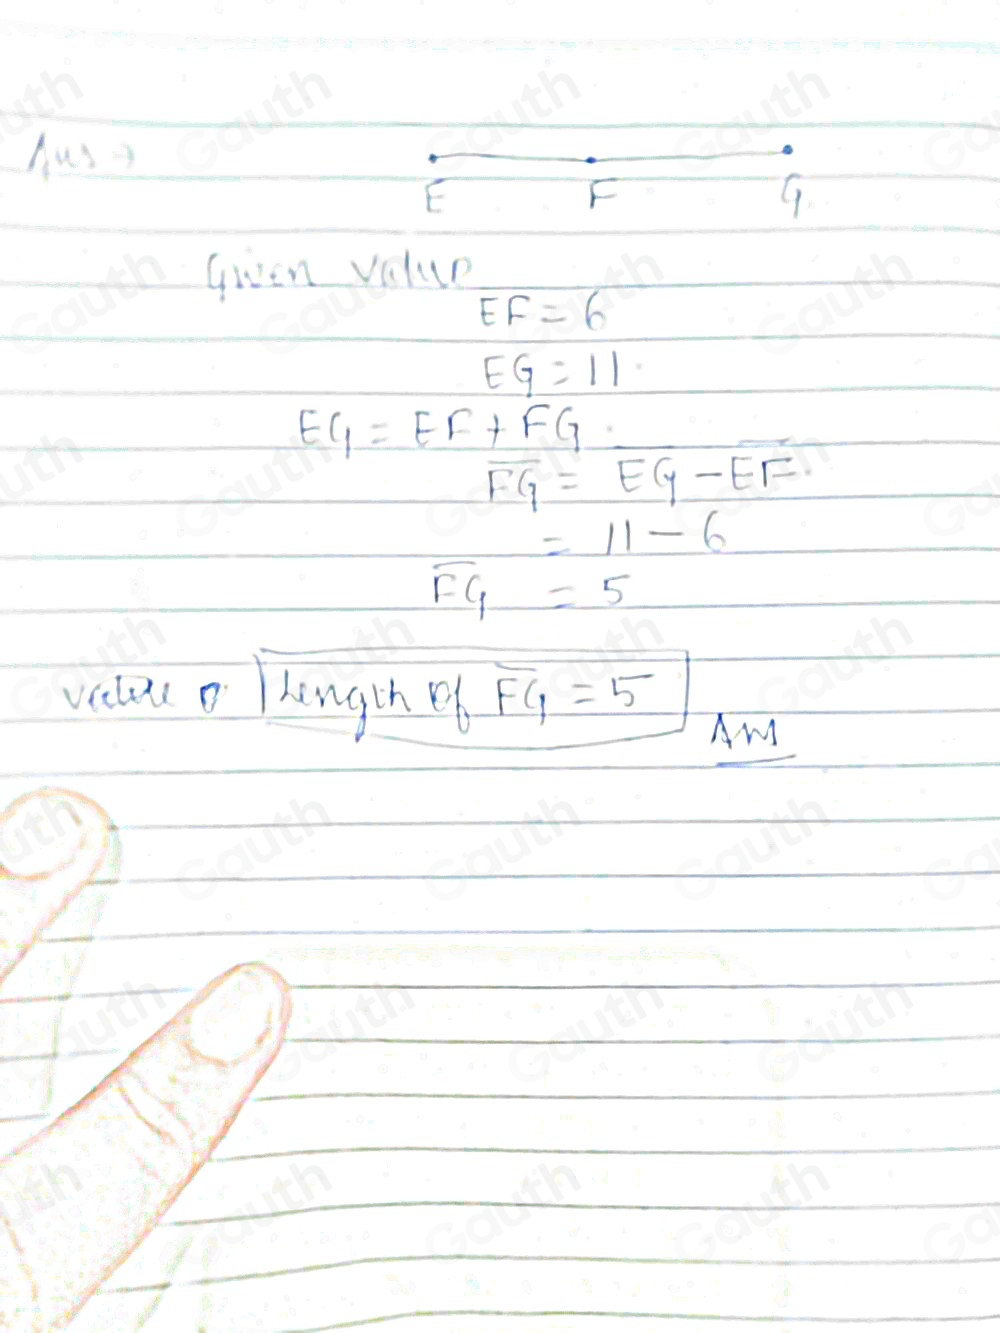 Ans →
E F G
Given value
EF = 6
EG = 11
EG = EF + FG
FG = EG - EF
= 11 - 6
FG = 5
value o Length of FG = 5
Ans